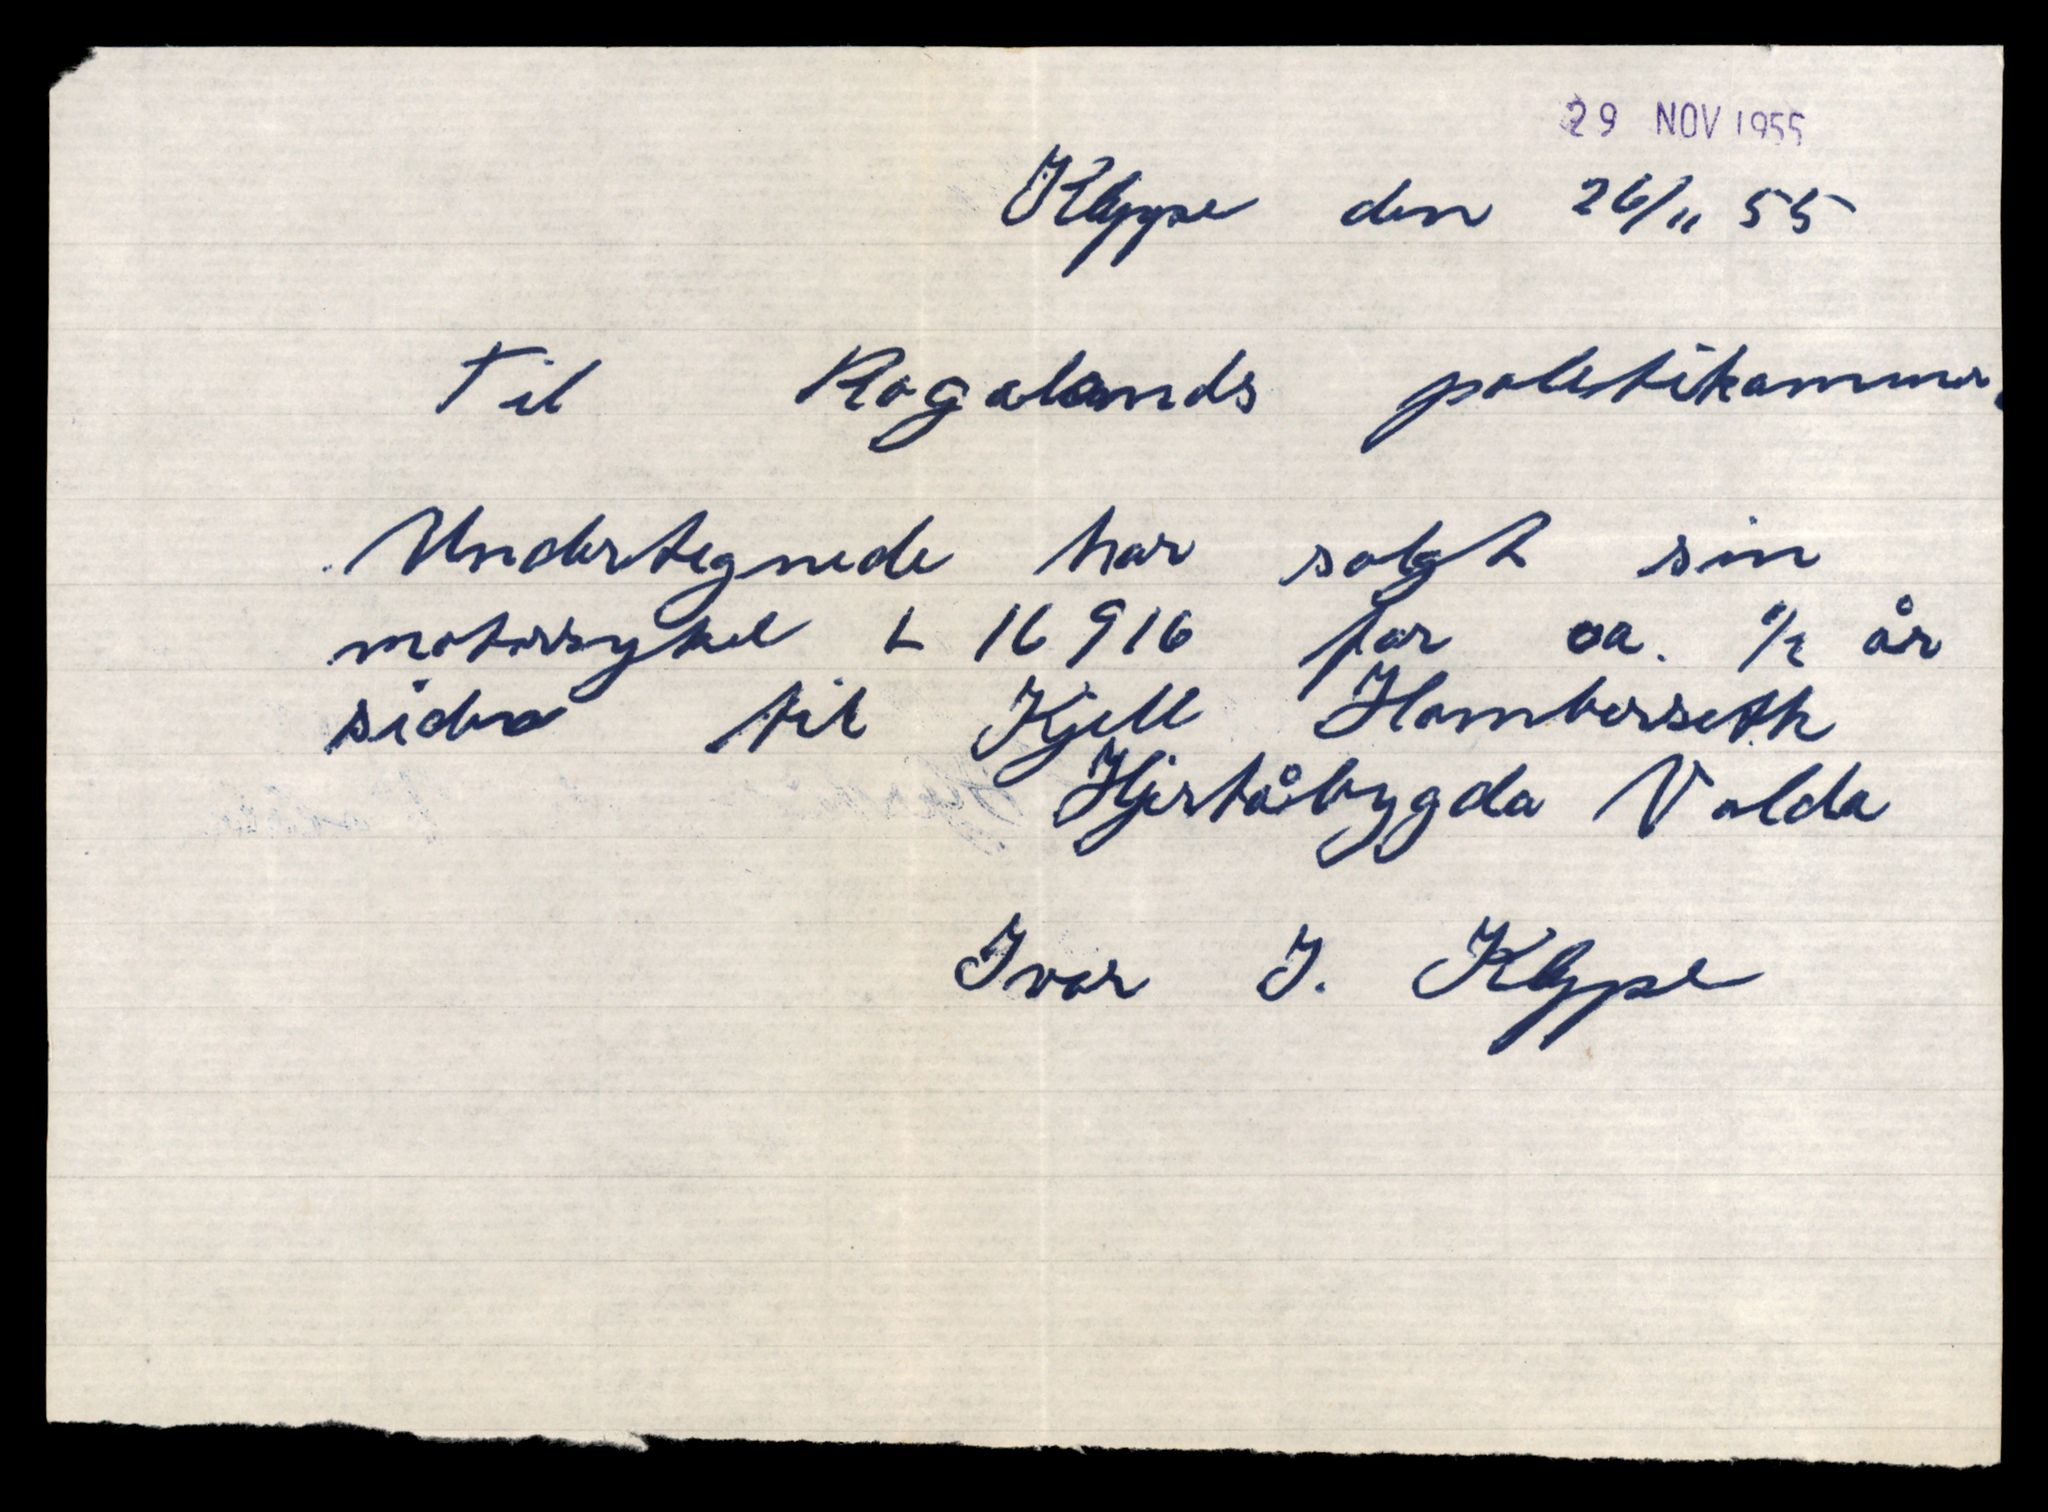 29 NOV 1955
Kleppe den 26/11 55
Til Rogalands politikammer.
Undertegnede har solgt sin
motorsykel L 16916 for ca. 1/2 år
siden til Kjell Homberseth
Hjertåbygda Volda
Ivar I. Kleppe